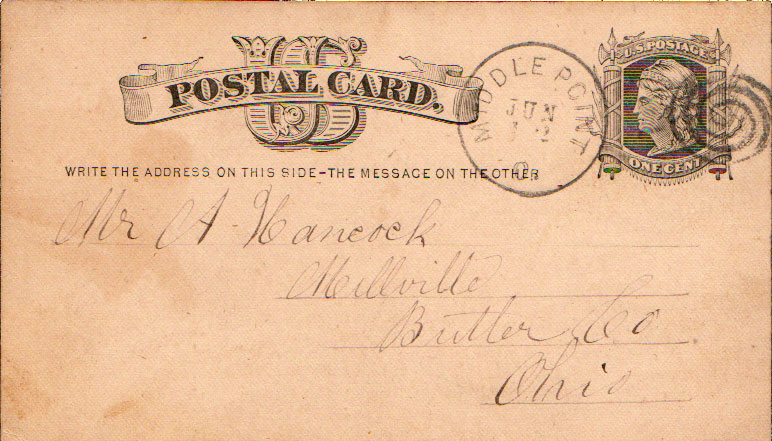 US
POSTAL CARD.
U.S. POSTAGE
ONE CENT
MIDDLE POINT
JUN
O.
WRITE THE ADDRESS ON THIS SIDE-THE MESSAGE ON THE OTHER
Mr A Hancock
Millville
Butler Co
Ohio